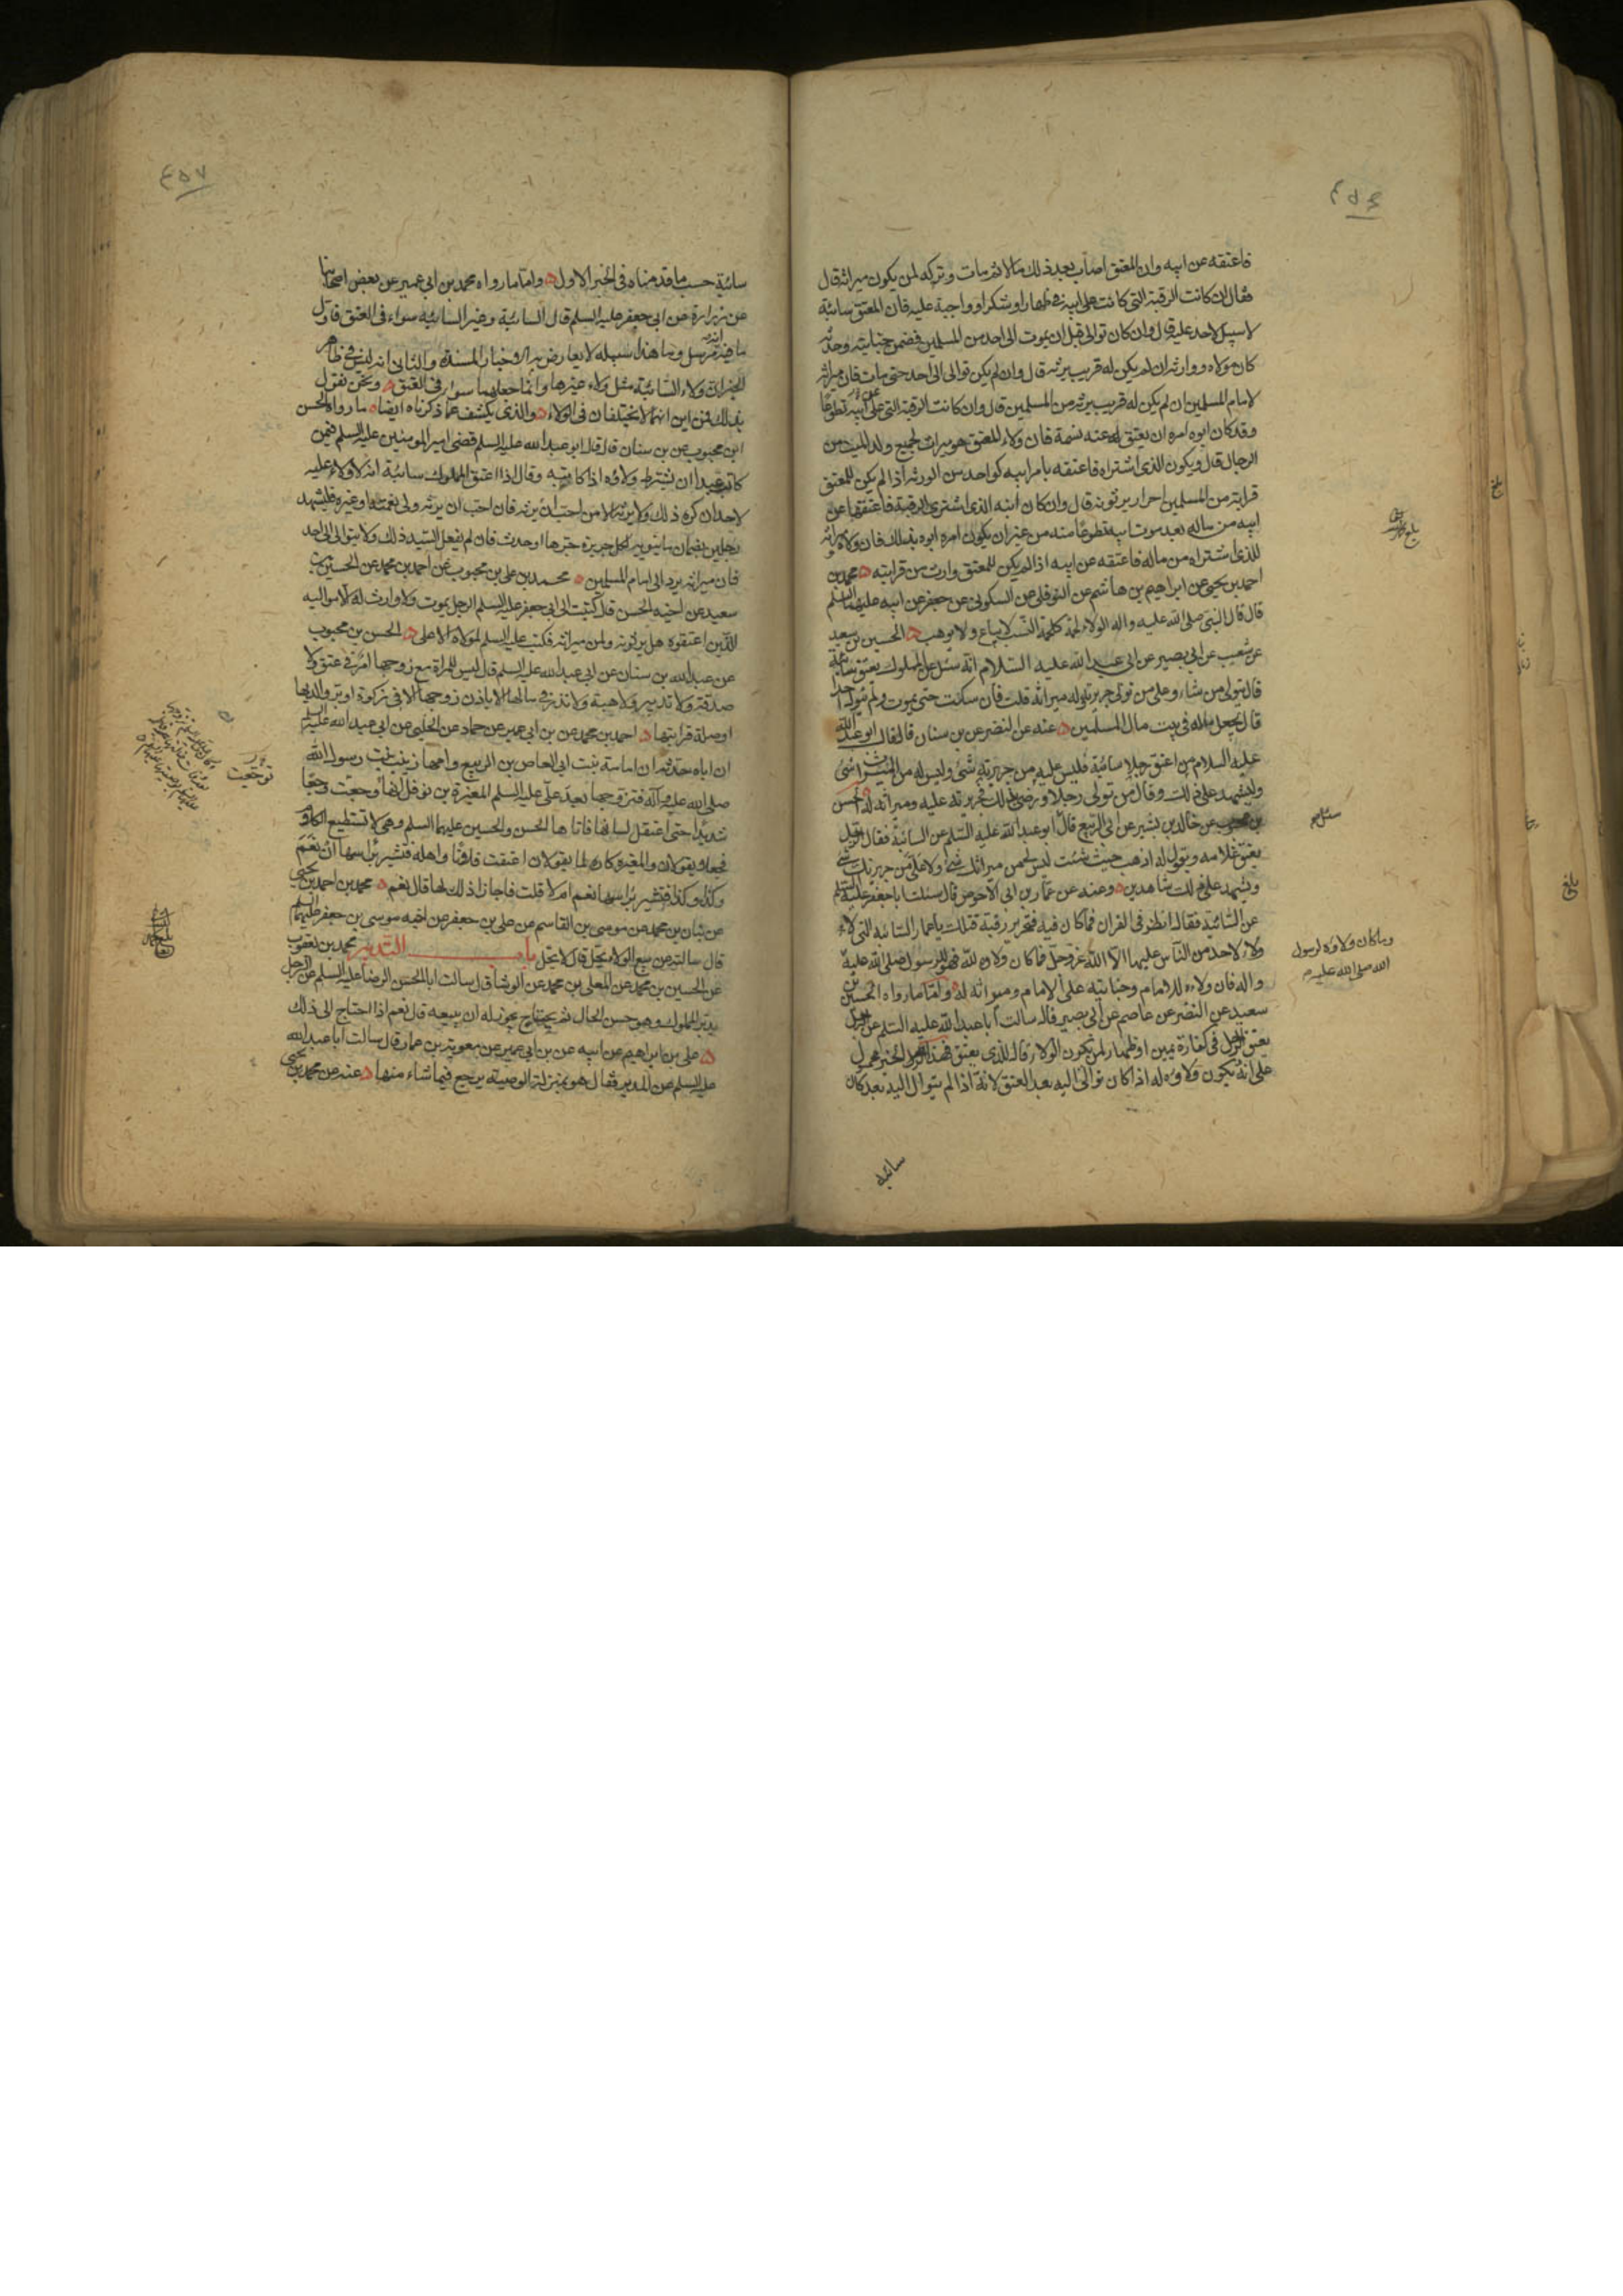 فاعتقه عن ابيه وان المعتق اصاب بعد ذلك مالا ثم مات وتركه لمن يكون ميراثه قال
فقال ان كانت الرقبة التي كانت على ابيه في ظهار او شكر او واجبة عليه فان المعتق سائبة
لا سبيل لاحد عليه قال وان كان توالى قبل ان يموت الى احد من المسلمين فضمن جنايته وحدثه
كان مولاه ووارثه ان لم يكن له قريب يرثه قال وان لم يكن توالى الى احد حتى مات فان ميراثه
لامام المسلمين ان لم يكن له قريب يرثه من المسلمين قال وان كانت الرقبة التي على ابيه تطوعا
وقد كان ابوه امره ان يعتق عنه نسمة فان ولاء المعتق هو ميراث لجميع ولد الميت من
الرجال قال ويكون الذي اشتراه فاعتقه بامر ابيه كواحد من الورثة اذا لم يكن للمعتق
قرابة من المسلمين احرار يرثونه قال وان كان ابنه الذي اشترى الرقبة فاعتقها عن
ابيه من ماله بعد موت ابيه تطوعا منه من غير ان يكون امره ابوه بذلك فان ولاءه وميراثه
للذي اشتراه من ماله فاعتقه عن ابيه اذا لم يكن للمعتق وارث من قرابته ه محمد بن
احمد بن يحيى عن ابراهيم بن هاشم عن النوفلي عن السكوني عن جعفر عن ابيه عليهما السلم
قال قال النبي صلى الله عليه واله الولاء لحمة كلحمة النسب لا يباع ولا يوهب ه الحسين بن سعيد
عن شعيب عن ابي بصير عن ابي عبد الله عليه السلام انه سئل عن المملوك يعتق سائبة
قال يتولى من شاء وعلى من تولى جريرته وله ميراثه قلت فان سكت حتى يموت ولم يتول احدا
قال يجعل ماله في بيت مال المسلمين ه عنه عن النضر عن بن سنان قال قال ابو عبد الله
عليه السلام من اعتق رجلا سائبة فليس عليه من جريرته شئ وليس له من الميراث شئ
وليشهد على ذلك وقال من تولى رجلا ورضي بذلك فجريرته عليه وميراثه له ه الحسن
بن محبوب عن خالد بن بشير عن ابي الربيع قال ابو عبد الله عليه السلم عن السائبة فقال الرجل
يعتق غلامه ويقول له اذهب حيث شئت ليس لي من ميراثك شئ ولا علي من جريرتك شئ
ويشهد على ذلك شاهدين ه وعنه عن عمار بن ابي الاحوص قال سئلت ابا جعفر عليه السلم
عن السائبة فقال انظر في القران فما كان فيه فتحرير رقبة فتلك يا عمار السائبة التي لا
ولاء لاحد من الناس عليها الا الله عز وجل فما كان ولاؤه لله فهو للرسول صلى الله عليه
واله فان ولاءه للامام وجنايته على الامام وميراثه له ه واما ما رواه الحسين بن
سعيد عن النضر عن عاصم عن ابي بصير قال سالت ابا عبد الله عليه السلم عن الرجل
يعتق الرجل في كفارة يمين او ظهار لمن يكون الولاء قال للذي يعتق فهذا الخبر محمول
على انه يكون ولاؤه له اذا كان توالى اليه بعد العتق لانه اذا لم يتوال اليه بعد كان
سائبه
سئل صح
وما كان ولاؤه لرسول
الله صلى الله عليه
بلغ
٤٥٧
سائبة حسب ما قدمناه في الخبر الاول ه واما ما رواه محمد بن ابي عمير عن بعض اصحابنا
عن زرارة عن ابي جعفر عليه السلم قال السائبة وغير السائبة سواء في العتق فاول
ما فيه انه مرسل وما هذا سبيله لا يعارض به الاخبار المسندة والثاني انه ليس في ظاهر
الخبر ان ولاء السائبة مثل ولاء غيرها وانما جعلهما سواء في العتق ه ونحن نقول
بذلك فمن اين انهما لا يختلفان في الولاء ه والذي يكشف عما ذكرناه ايضا ه ما رواه الحسن
ابن محبوب عن بن سنان قال قال ابو عبد الله عليه السلم قضى امير المومنين عليه السلم فيمن
كاتب عبدا ان يشترط ولاؤه اذا كاتبه وقال اذا اعتق المملوك سائبة انه لا ولاء عليه
لاحد ان كره ذلك ولا يرثه الا من احب ان يرثه فان احب ان يرثه ولي نعمته او غيره فليشهد
رجلين بضمان ما ينوبه لكل جريرة جرها او حدث فان لم يفعل السيد ذلك ولا يتوالى الى احد
فان ميراثه يرد الى امام المسلمين ه محمد بن علي بن محبوب عن احمد بن محمد عن الحسين بن
سعيد عن اخيه الحسن قال كتبت الى ابي جعفر عليه السلم الرجل يموت ولا وارث له الا مواليه
الذين اعتقوه هل يرثونه ولمن ميراثه فكتب عليه السلم لمولاه الاعلى ه الحسن بن محبوب
عن عبد الله بن سنان عن ابي عبد الله عليه السلم قال ليس للمراة مع زوجها امر في عتق ولا
صدقة ولا تدبير ولا هبة ولا نذر في مالها الا باذن زوجها الا في زكوة او بر والديها
او صلة قرابتها ه احمد بن محمد عن بن ابي عمير عن حماد عن الحلبي عن ابي عبد الله عليه السلم
ان اباه حدثه ان امامة بنت ابي العاص بن الربيع وامها زينب بنت رسول الله
صلى الله عليه واله فتزوجها بعد علي عليه السلم المغيرة بن نوفل انها وجعت وجعا
شديدا حتى اعتقل لسانها فاتاها الحسن والحسين عليهما السلم وهي لا تستطيع الكلام
فجعلا يقولان والمغيرة كاره لما يقولان اعتقت فلانا واهله فتشير براسها ان نعم
وكذا وكذا فتشير براسها نعم ام لا قلت فاجازا ذلك لها قال نعم ه محمد بن احمد بن يحيى
عن بنان بن محمد عن موسى بن القاسم عن علي بن جعفر عن اخيه موسى بن جعفر عليهما السلم
قال سالته عن بيع الولاء يحل قال لا يحل باب التدبير محمد بن يعقوب
عن الحسين بن محمد عن المعلى بن محمد عن الوشا قال سالت ابا الحسن الرضا عليه السلم عن الرجل
يدبر المملوك وهو حسن الحال ثم يحتاج يجوز له ان يبيعه قال نعم اذا احتاج الى ذلك
ه علي بن ابراهيم عن ابيه عن بن ابي عمير عن معوية بن عمار قال سالت ابا عبد الله
عليه السلم عن المدبر فقال هو بمنزلة الوصية يرجع فيما شاء منها ه عنه عن محمد بن يحيى
توجعت